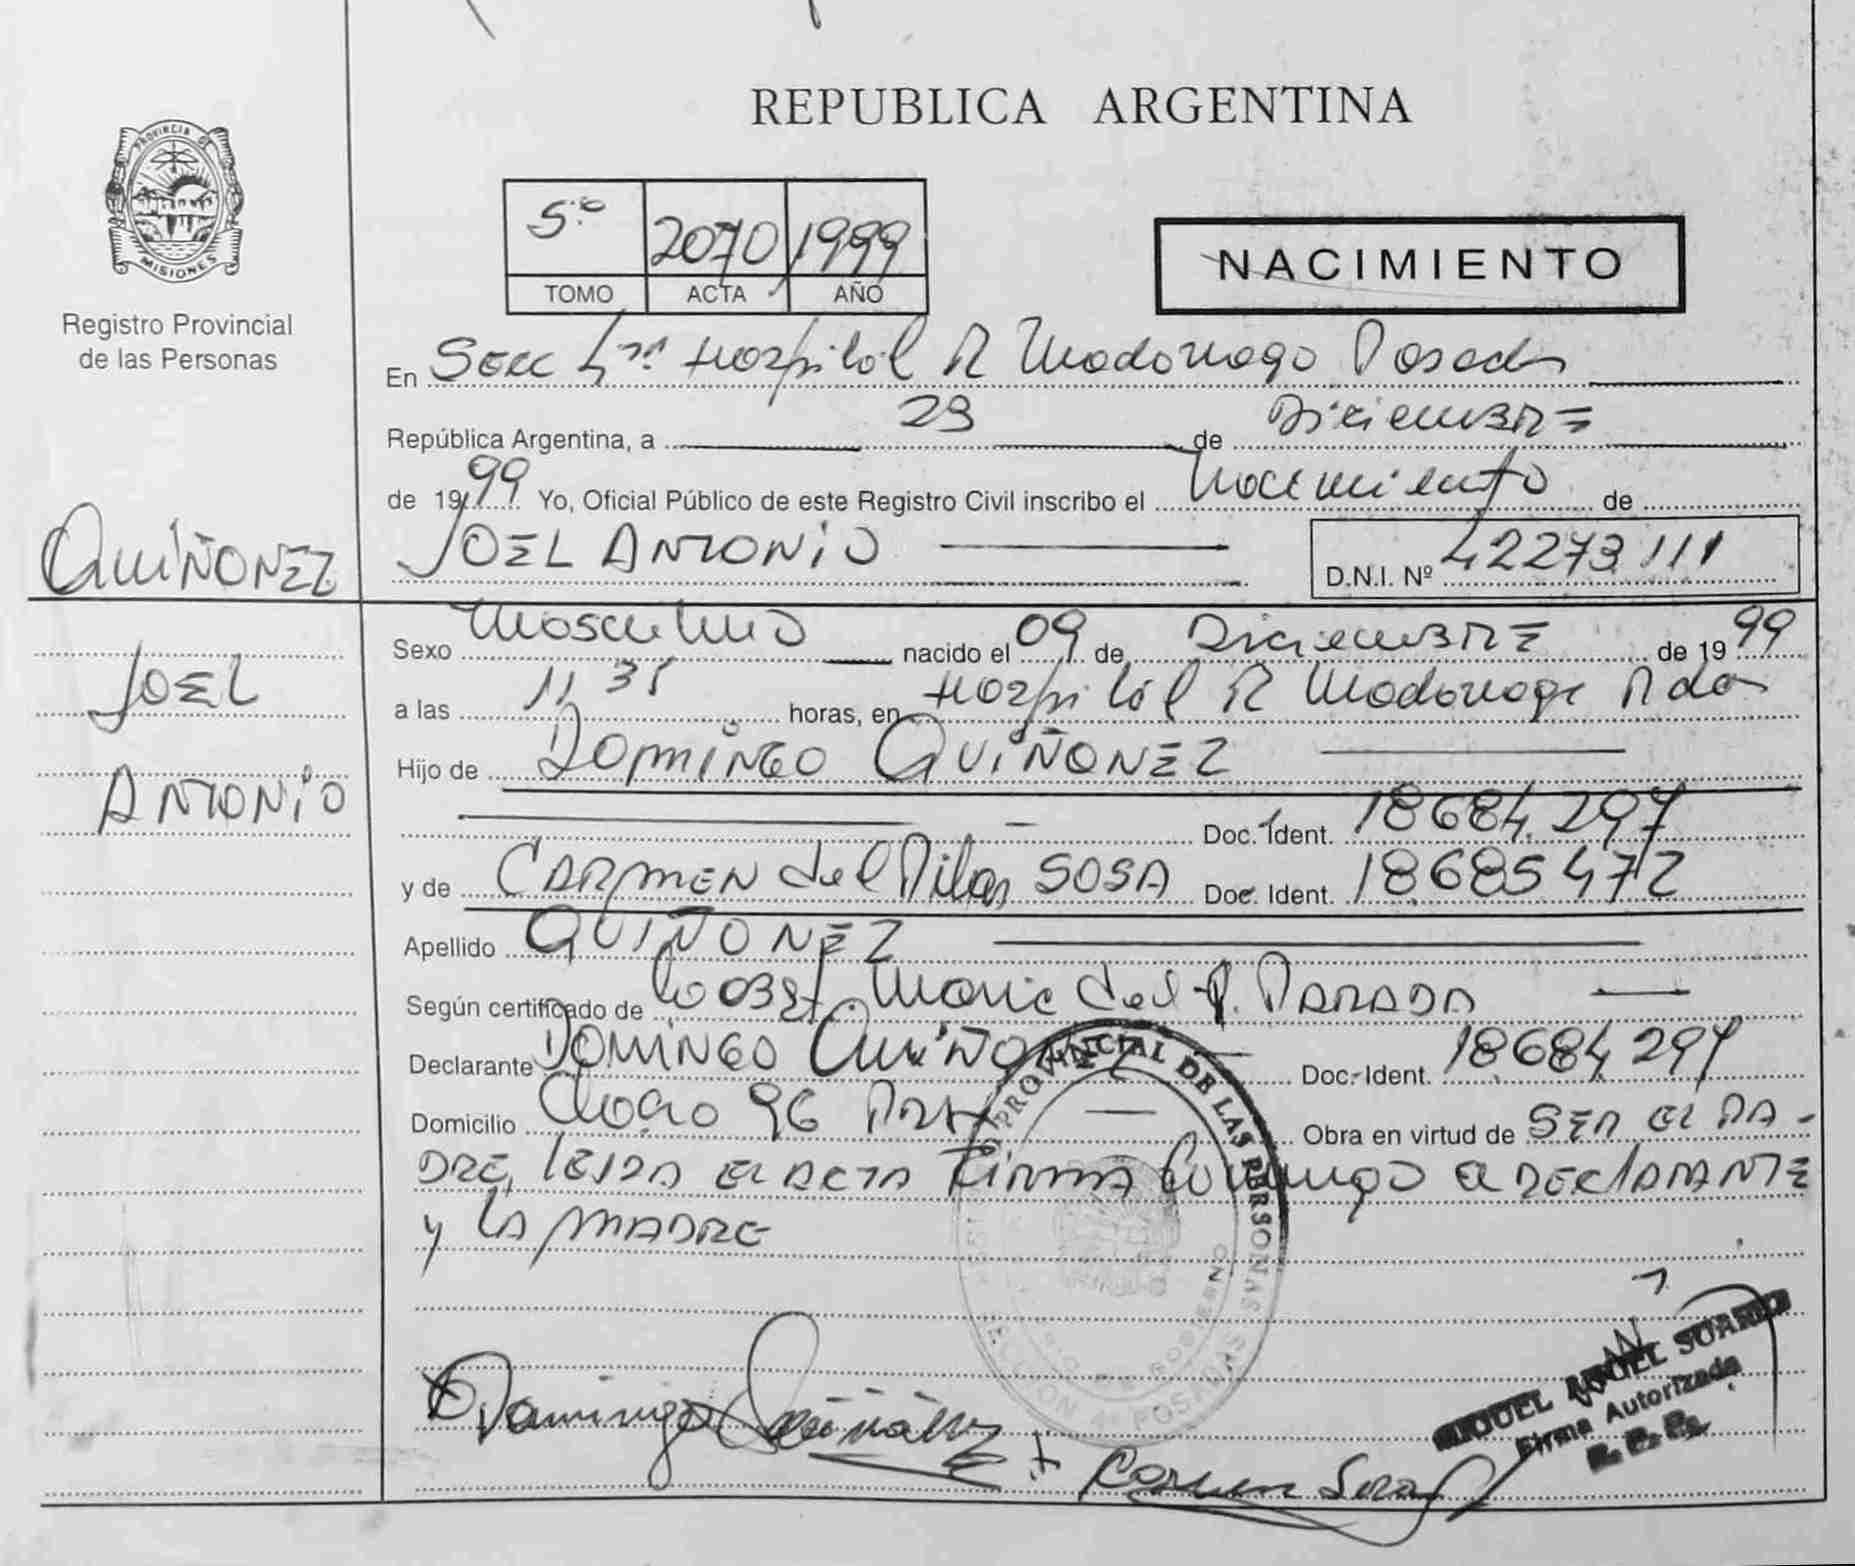 REPUBLICA ARGENTINA
PROVINCIA DE
MISIONES
Registro Provincial
de las Personas
5º 2070 1999
TOMO ACTA AÑO
NACIMIENTO
En Secc 4ta Hospital R Madariaga Posadas
República Argentina, a 29 de Diciembre
de 1999 Yo, Oficial Público de este Registro Civil inscribo el Nacimiento de
QUIÑONEZ JOEL ANTONIO D.N.I. Nº 42273111
JOEL
ANTONIO
Sexo Masculino nacido el 09 de Diciembre de 1999
a las 11 35 horas, en Hospital R Madariaga Pdas
Hijo de DOMINGO QUIÑONEZ
Doc. Ident. 18684.297
y de CARMEN del Pilar SOSA Doc. Ident. 18685472
Apellido QUIÑONEZ
Según certificado de Maria del P. PARADA
Declarante DOMINGO QUIÑONEZ Doc. Ident. 18684297
Domicilio 96 Obra en virtud de SER EL PA-
DRE, LEIDA EL ACTA FIRMA Conmigo el DECLARANTE
y LA MADRE
PROVINCIAL DE LAS PERSONAS
SECCION 4ª POSADAS
Domingo Quiñonez
Carmen Sosa
MIGUEL ANGEL SUAREZ
Firma Autorizada
R. P. P.